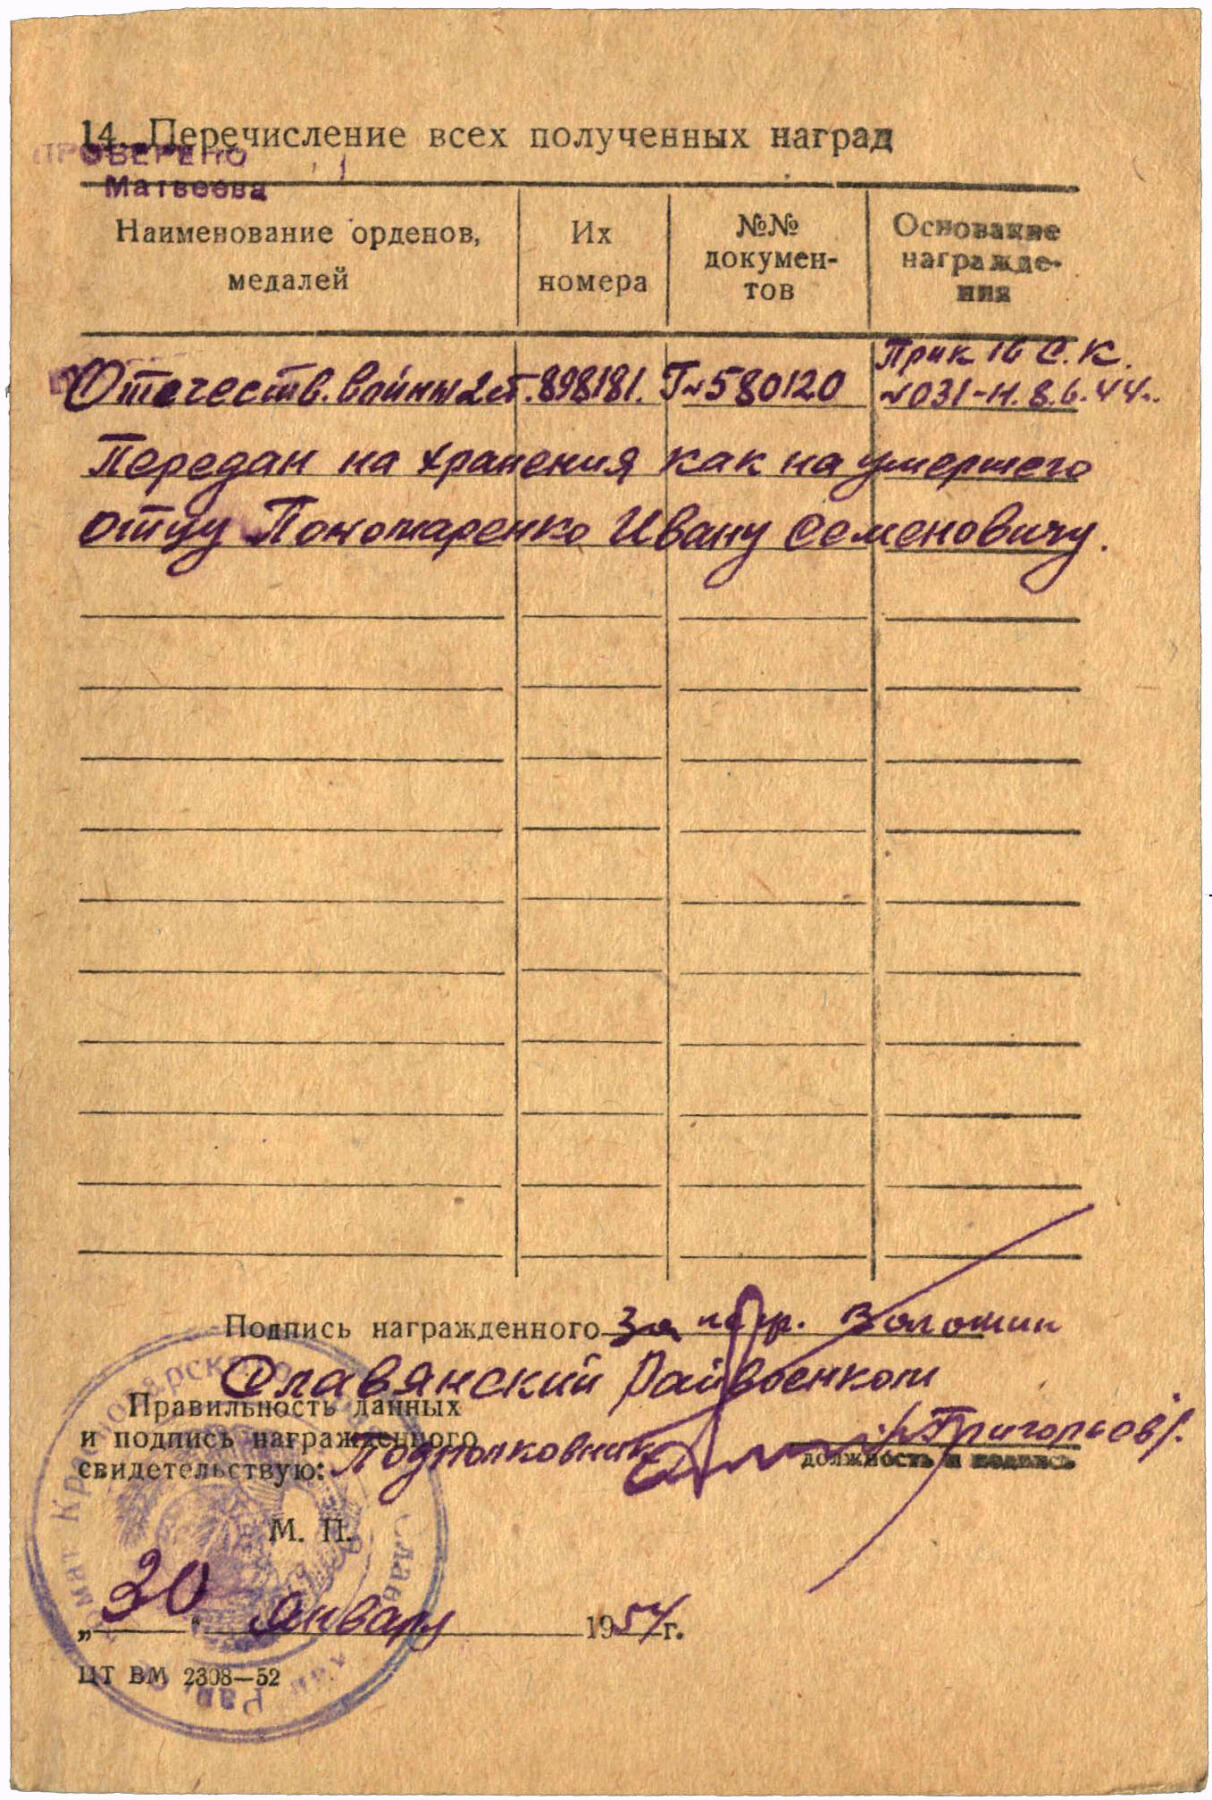 14. Перечисление всех полученных наград
ПРОВЕРЕНО
Матвеева
Наименование орденов, медалей
Их номера
№№ документов
Основание награждения
Отечеств. войны 2 ст. 898181. Г№580120 Прик 16 С.К. №031-Н. 8.6.44г.
Передан на хранения как на умершего
отцу Пономаренко Ивану Семеновичу.
Подпись награжденного За Волошин
Славянский Райвоенком
Правильность данных
и подпись награжденного
свидетельствую: Подполковник /Григорьов/.
должность и подпись
М. П.
„30“ январу 1954 г.
ЦТ ВМ 2308—52